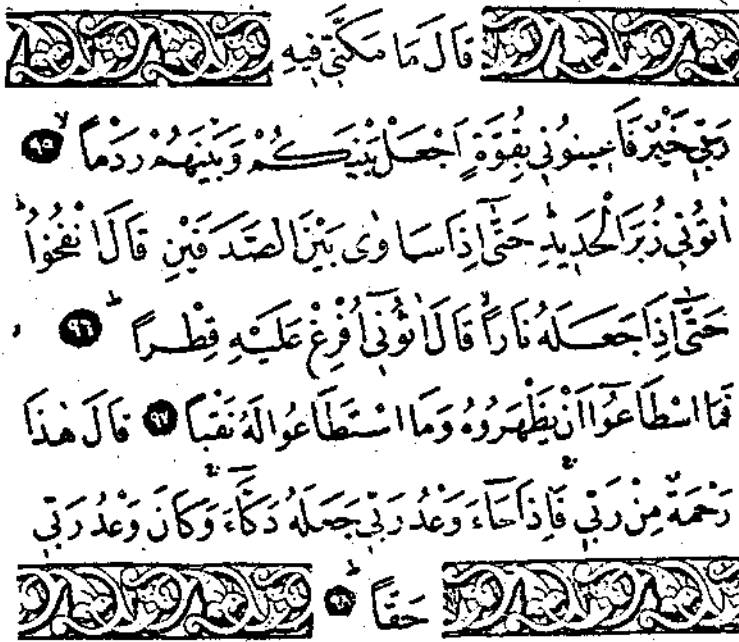 قَالَ مَا مَكَّنّٖى فٖيهِ
رَبّٖى خَيْرٌ فَاَعٖينُونٖى بِقُوَّةٍ اَجْعَلْ بَيْنَكُمْ وَبَيْنَهُمْ رَدْماًۙ ﴿٩٥﴾
اٰتُونٖى زُبَرَ الْحَدٖيدِؕ حَتّٰٓى اِذَا سَاوٰى بَيْنَ الصَّدَفَيْنِ قَالَ انْفُخُواؕ
حَتّٰٓى اِذَا جَعَلَهُ نَاراًۙ قَالَ اٰتُونٖٓى اُفْرِغْ عَلَيْهِ قِطْراًؕ ﴿٩٦﴾
فَمَا اسْطَاعُٓوا اَنْ يَظْهَرُوهُ وَمَا اسْتَطَاعُوا لَهُ نَقْباً ﴿٩٧﴾ قَالَ هٰذَا
رَحْمَةٌ مِنْ رَبّٖى فَاِذَا جَٓاءَ وَعْدُ رَبّٖى جَعَلَهُ دَكَّٓاءَ وَكَانَ وَعْدُ رَبّٖى
حَقاًّؕ ﴿٩٨﴾